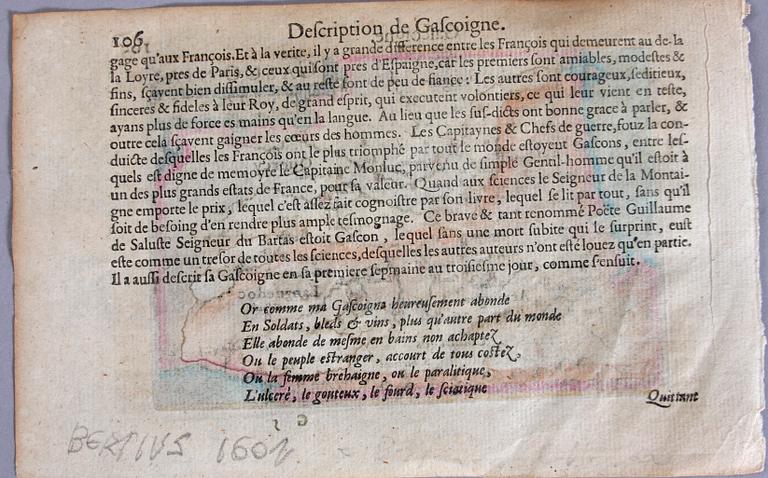 106 Description de Gascoigne.
gage qu'aux François. Et à la verite, il y a grande difference entre les François qui demeurent au de-la
la Loyre, pres de Paris, & ceux qui sont pres d'Espaigne, car les premiers sont amiables, modestes &
fins, sçavent bien dissimuler, & au reste sont de peu de fiance: Les autres sont courageux, seditieux,
sinceres & fideles à leur Roy, de grand esprit, qui executent volontiers, ce qui leur vient en teste,
ayans plus de force es mains qu'en la langue. Au lieu que les sus-dicts ont bonne grace à parler, &
outre cela sçavent gaigner les cœurs des hommes. Les Capitaynes & Chefs de guerre, souz la con-
duicte desquelles les François ont le plus triomphé par tout le monde estoyent Gascons, entre les-
quels est digne de memoyre le Capitaine Monluc, parvenu de simple Gentil-homme qu'il estoit à
un des plus grands estats de France, pour sa valeur. Quand aux sciences le Seigneur de la Montai-
gne emporte le prix, lequel c'est assez fait cognoistre par son livre, lequel se lit par tout, sans qu'il
soit de besoing d'en rendre plus ample tesmognage. Ce brave & tant renommé Poëte Guillaume
de Saluste Seigneur du Bartas estoit Gascon, lequel sans une mort subite qui le surprint, eust
este comme un tresor de toutes les sciences, desquelles les autres auteurs n'ont esté louez qu'en partie.
Il a aussi descrit sa Gascoigne en sa premiere sepmaine au troisiesme jour, comme s'ensuit.
Or comme ma Gascoigne heureusement abonde
En Soldats, bleds & vins, plus qu'autre part du monde
Elle abonde de mesme en bains non achaptez
Ou le peuple estranger, accourt de tous costez,
Ou la femme brehaigne, ou le paralitique,
L'ulceré, le gouteux, le sourd, le sciatique
Quittant
BERTIUS 1601